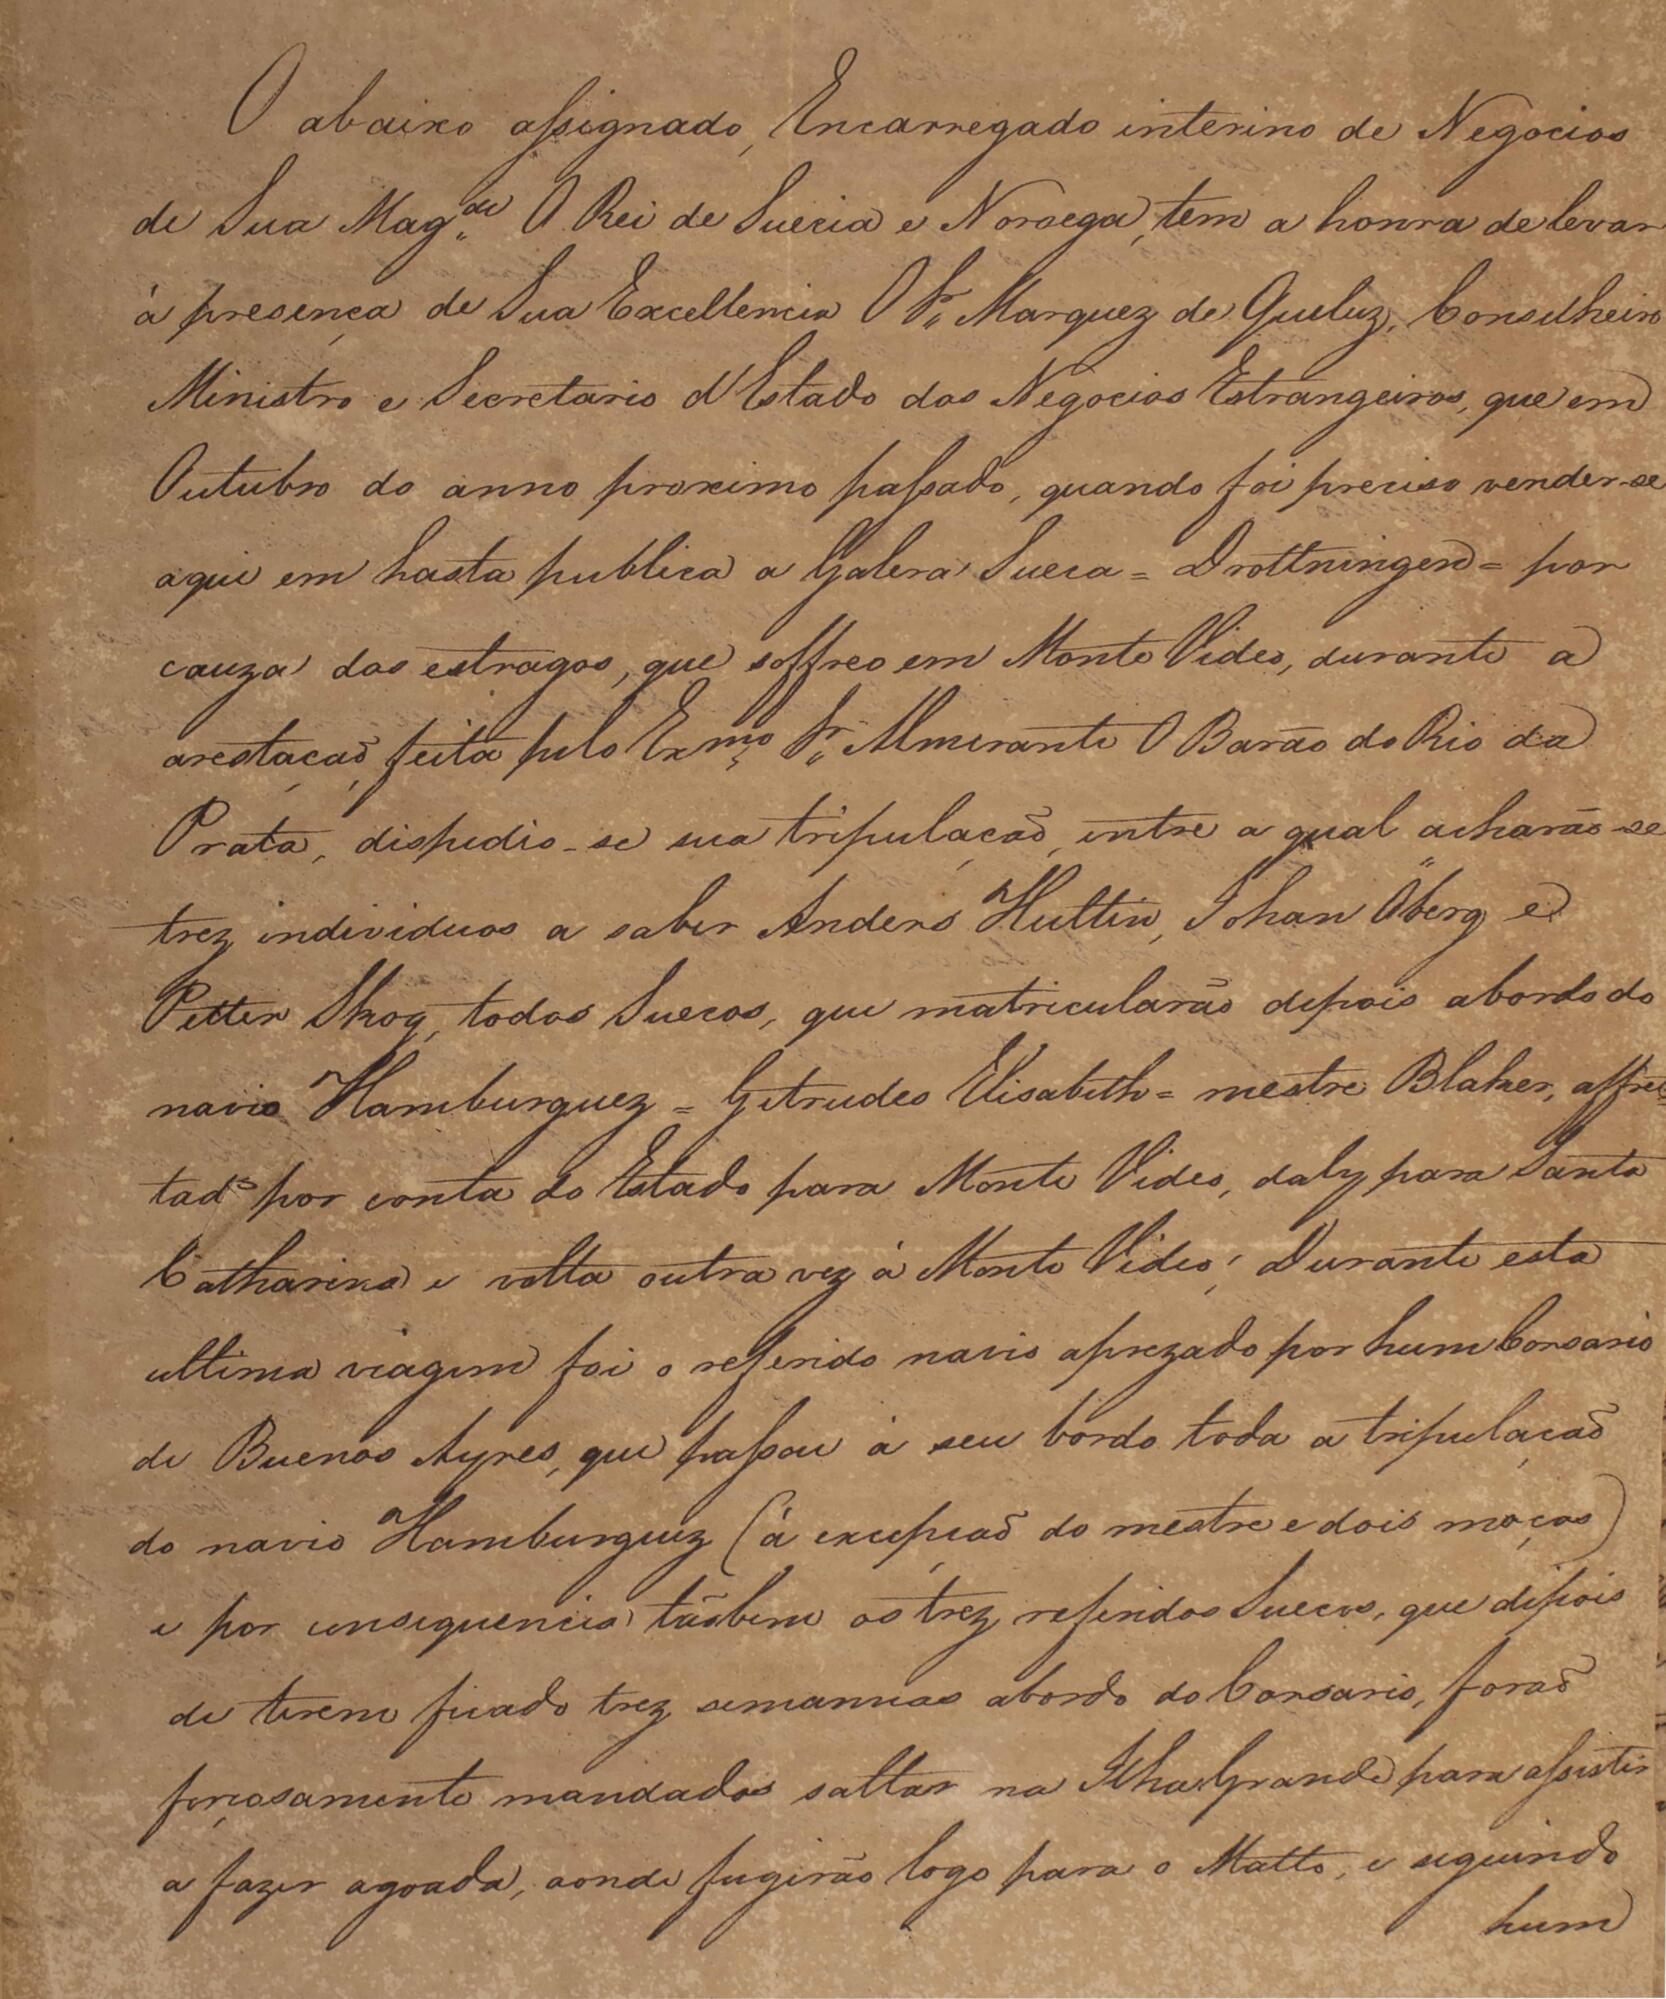 O abaixo assignado, Encarregado interino de Negocios
de Sua Mag.de O Rei de Suecia e Noroega, tem a honra de levar
á presença de Sua Excellencia O Sr. Marquez de Queluz, Conselheiro
Ministro e Secretario d'Estado dos Negocios Estrangeiros, que em
Outubro do anno proximo passado, quando foi preciso vender-se
aqui em hasta publica a Galera Sueca = Drottningen = por
cauza dos estragos, que soffreo em Monte Video, durante a
arestação, feita pelo Exmo. Sr. Almerante O Barão do Rio da
Prata, dispedio-se sua tripulação, entre a qual acharão-se
trez individuos a saber Anders Hultin, Johan Öberg e
Petter Skog, todos Suecos, que matricularão depois abordo do
navio Hamburguez = Getrudes Elisabeth = mestre Blaker, affre=
tado por conta do Estado para Monte Video, daly para Santa
Catharina e volta outra vez á Monte Video; Durante esta
ultima viagem foi o referido navio aprezado por hum Corsario
de Buenos Ayres, que passou á seu bordo toda a tripulação
do navio Hamburguez (á excepção do mestre e dois moços)
e por consequencia tãobem os trez referidos Suecos, que depois
de terem ficado trez semannas abordo do Corsario, forão
forçosamente mandados saltar na Ilha Grande para assistir
a fazer agoada, aonde fugirão logo para o Matto, e seguindo
hum